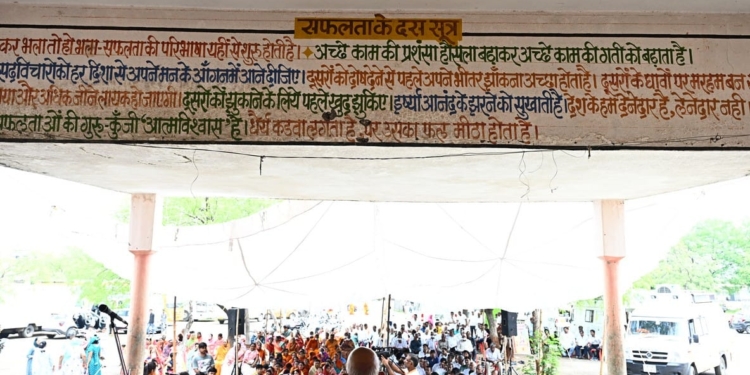 सफलता के दस सूत्र
कर भला तो हो भला - सफलता की परिभाषा यहीं से शुरु होती है। अच्छे काम की प्रशंसा हौसला बढ़ाकर अच्छे काम की गती को बढ़ाता है।
सद्विचारों को हर दिशा से अपने मन के आँगन में आने दीजिए। दूसरों को दोष देने से पहले अपने भीतर झाँकना अच्छा होता है। दूसरों के घावों पर मरहम बन
और अधिक जीने लायक हो जाएगा। दूसरों को झुकाने के लिये पहले खुद झुकिए। इर्ष्या आनंद के झरने को सुखाती है। देश के हम देनेदार हैं, लेनदार नहीं।
सफलताओं की गुरु-कुँजी 'आत्मविश्वास' है। धैर्य कडवा लगता है, पर उसका फल मीठा होता है।